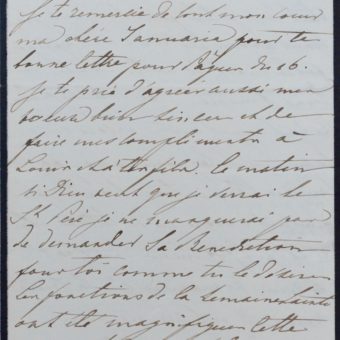 Je te remercie de tout mon cœur
ma chère Januaria pour ta
bonne lettre pour Pâques du 16.
Je te prie d'agréer aussi mes
vœux bien sincères et de
faire mes compliments à
Louis et à ton fils. Ce matin
si Dieu veut que je verrai le
St Père je ne manquerai pas
de demander Sa Bénédiction
pour toi comme tu le désires
Les fonctions de la Semaine Sainte
ont été magnifiques cette